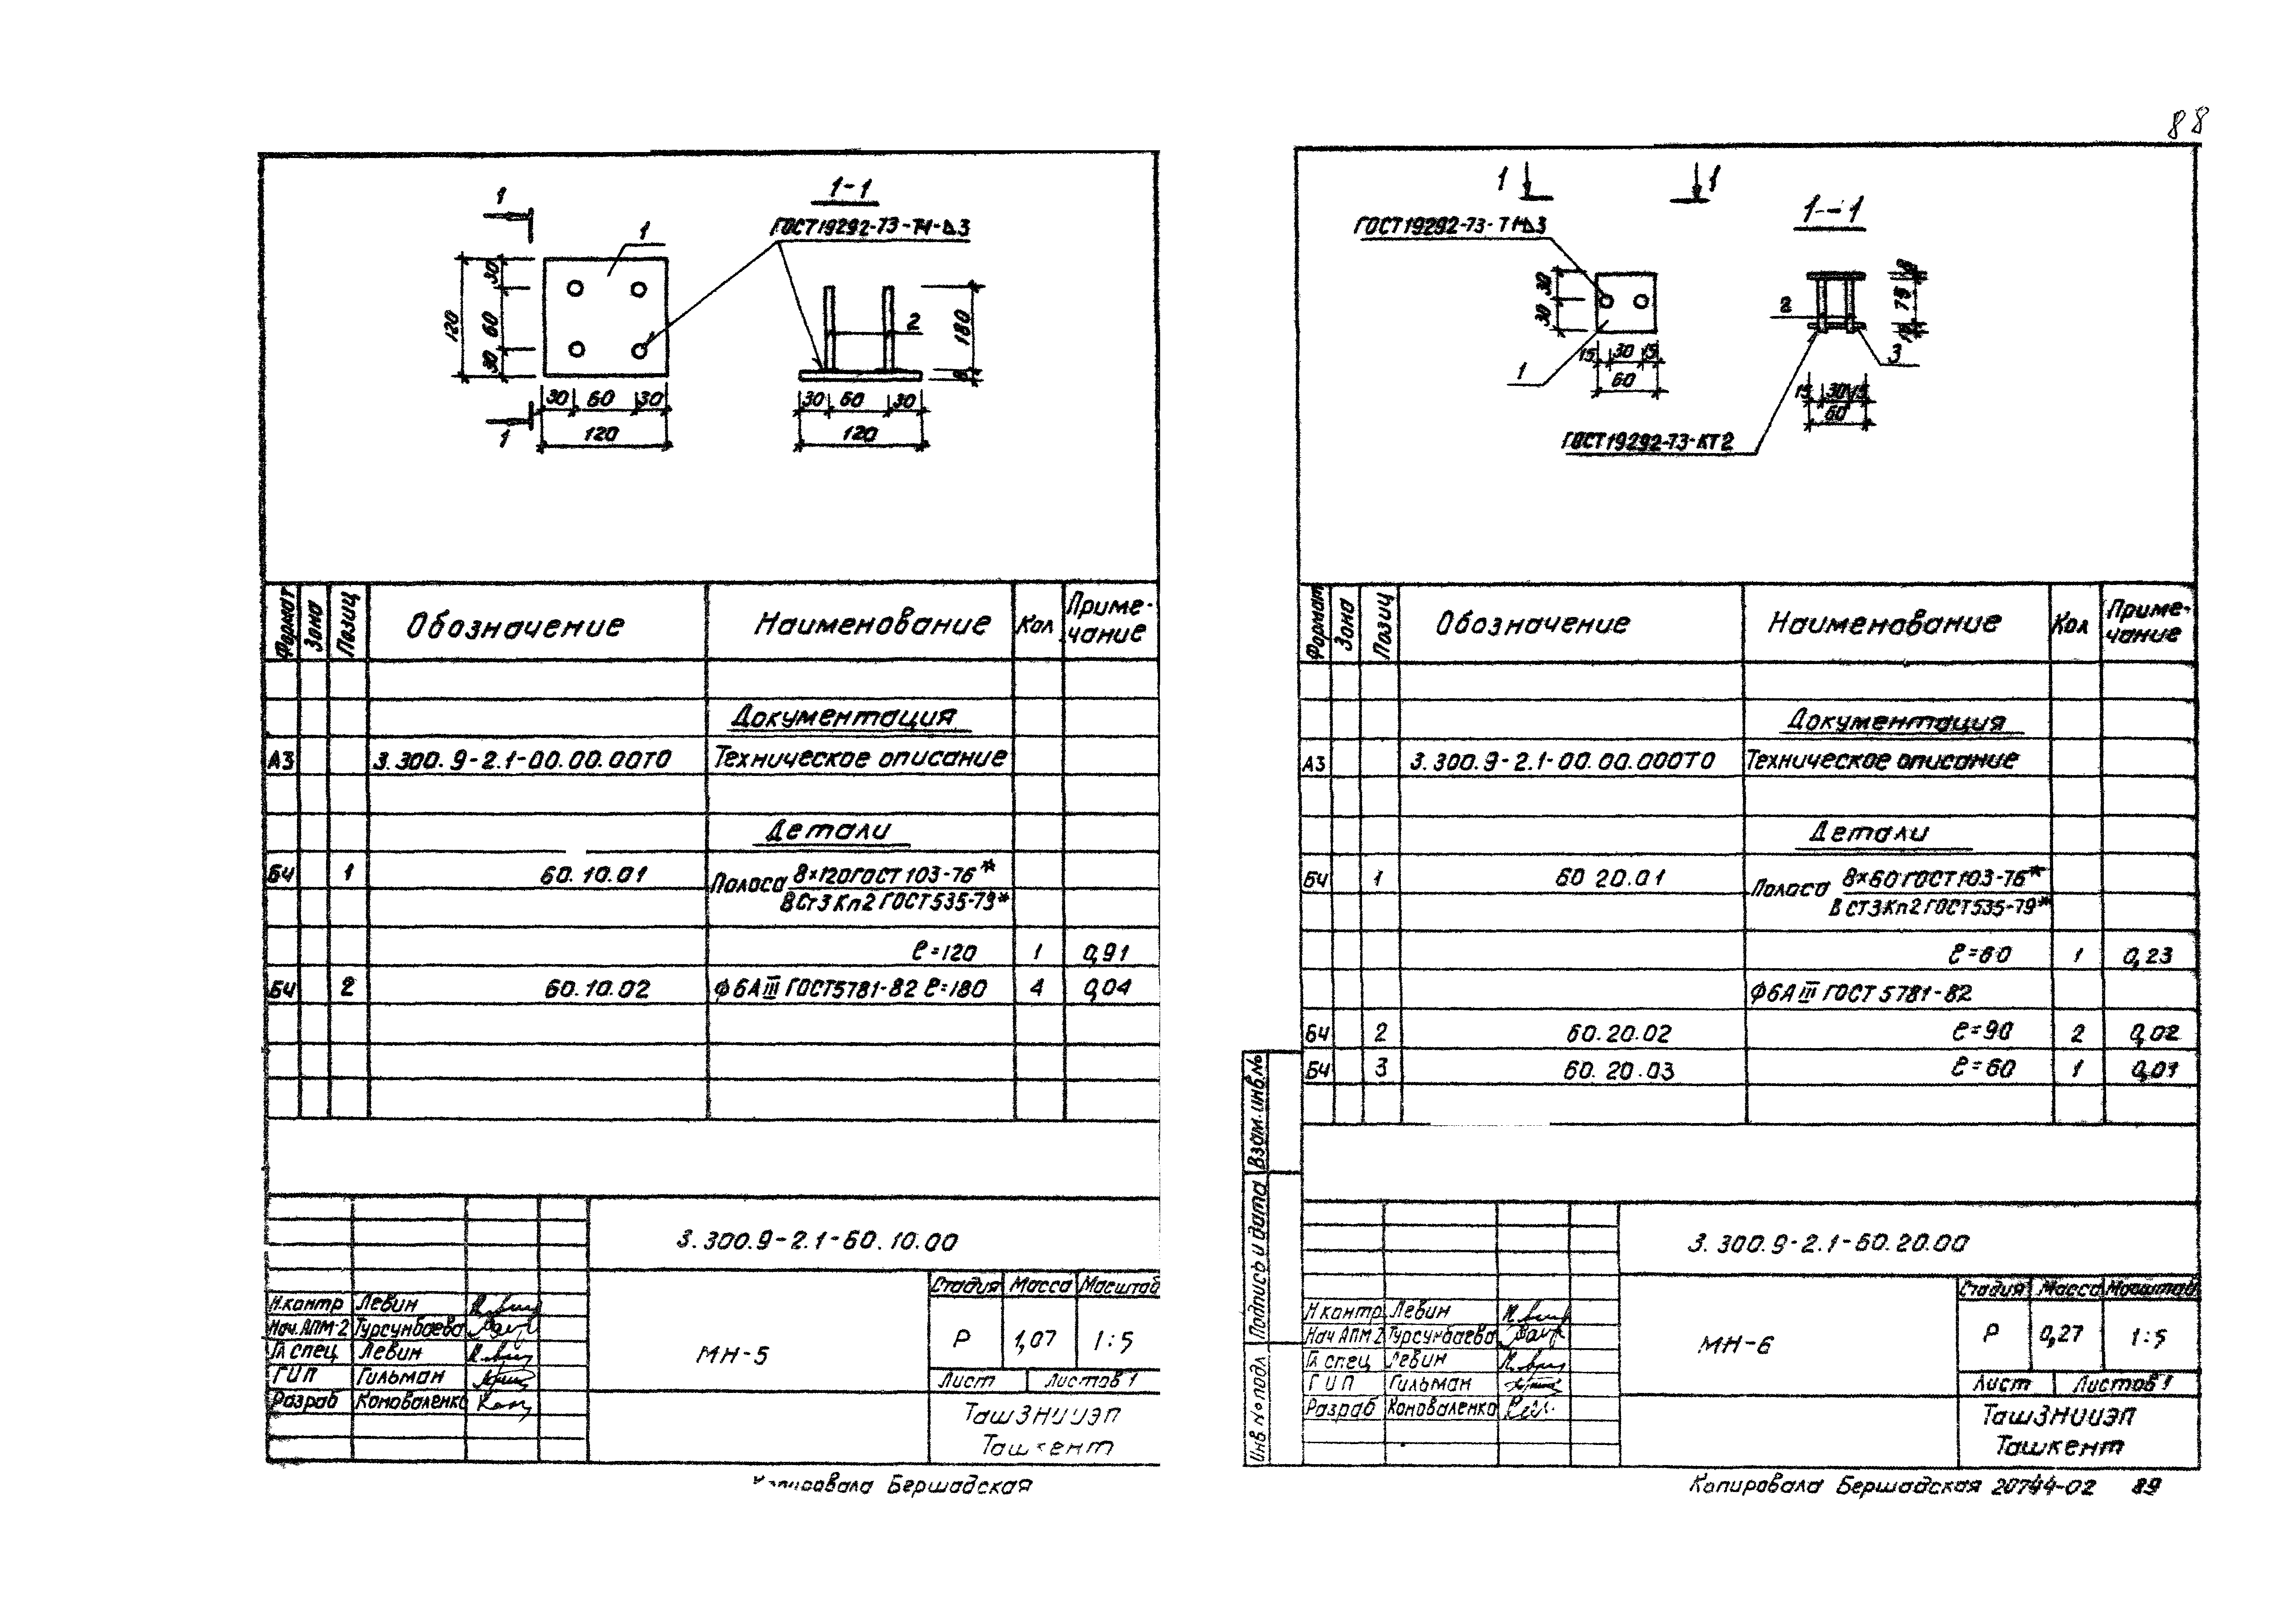 88
1
1
1-1
ГОСТ19292-73-Т1-Δ3
1
120
30
60
30
30 60 30
120
2
180
8
30 60 30
120
Формат Зона Позиц Обозначение Наименование Кол Приме-чание
Документация
А3 3.300.9-2.1-00.00.00ТО Техническое описание
Детали
БЧ 1 60.10.01 Полоса 8×120ГОСТ103-76*
ВСт3Кп2ГОСТ535-79*
ℓ=120 1 0,91
БЧ 2 60.10.02 Ф6АIII ГОСТ5781-82 ℓ=180 4 0,04
3.300.9-2.1-60.10.00
Н.контр Левин
Нач.АПМ-2 Турсунбаева
Гл спец Левин
ГИП Гильман
Разраб Коноваленко
МН-5
Стадия Масса Масштаб
Р 1,07 1:5
Лист Листов 1
ТашЗНИИЭП
Ташкент
Копировала Бершадская
1 1
1-1
ГОСТ19292-73-Т1-Δ3
30
30
1
15 30 15
60
2
3
8
75
15 30 15
60
ГОСТ19292-73-КТ2
Формат Зона Позиц Обозначение Наименование Кол Приме-чание
Документация
А3 3.300.9-2.1-00.00.000ТО Техническое описание
Детали
БЧ 1 60 20.01 Полоса 8×60ГОСТ103-76*
ВСТ3Кп2ГОСТ535-79*
ℓ=60 1 0,23
Ф6АIII ГОСТ 5781-82
БЧ 2 60.20.02 ℓ=90 2 0,02
БЧ 3 60.20.03 ℓ=60 1 0,01
Взам.инв.№
Подпись и дата
Инв № подл
3.300.9-2.1-60.20.00
Н контр Левин
Нач АПМ 2 Турсунбаева
Гл спец Левин
ГИП Гильман
Разраб Коноваленко
МН-6
Стадия Масса Масштаб
Р 0,27 1:5
Лист Листов 1
ТашЗНИИЭП
Ташкент
Копировала Бершадская 20744-02 89